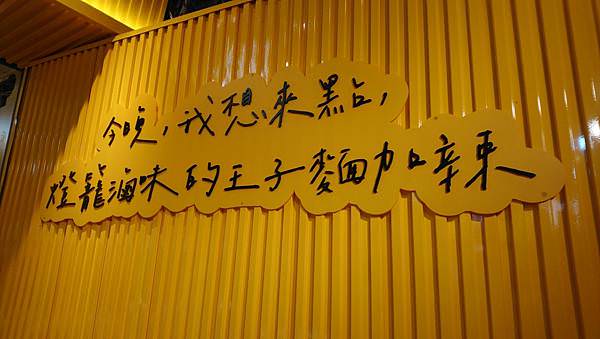 今晚,我想來點,
燈籠滷味的王子麵加辛東